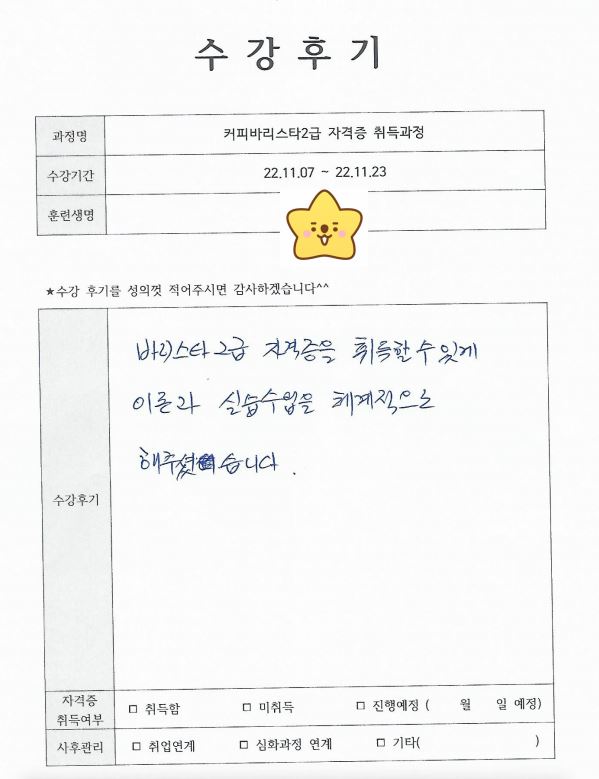 수강후기
과정명 커피바리스타2급 자격증 취득과정
수강기간 22.11.07 ~ 22.11.23
훈련생명
★수강 후기를 성의껏 적어주시면 감사하겠습니다^^
바리스타2급 자격증을 취득할 수 있게
이론과 실습수업을 체계적으로
수강후기
해주셨습니다.
자격증 취득여부 □ 취득함 □ 미취득 □ 진행예정 ( 월 일 예정)
사후관리 □ 취업연계 □ 심화과정 연계 □ 기타( )